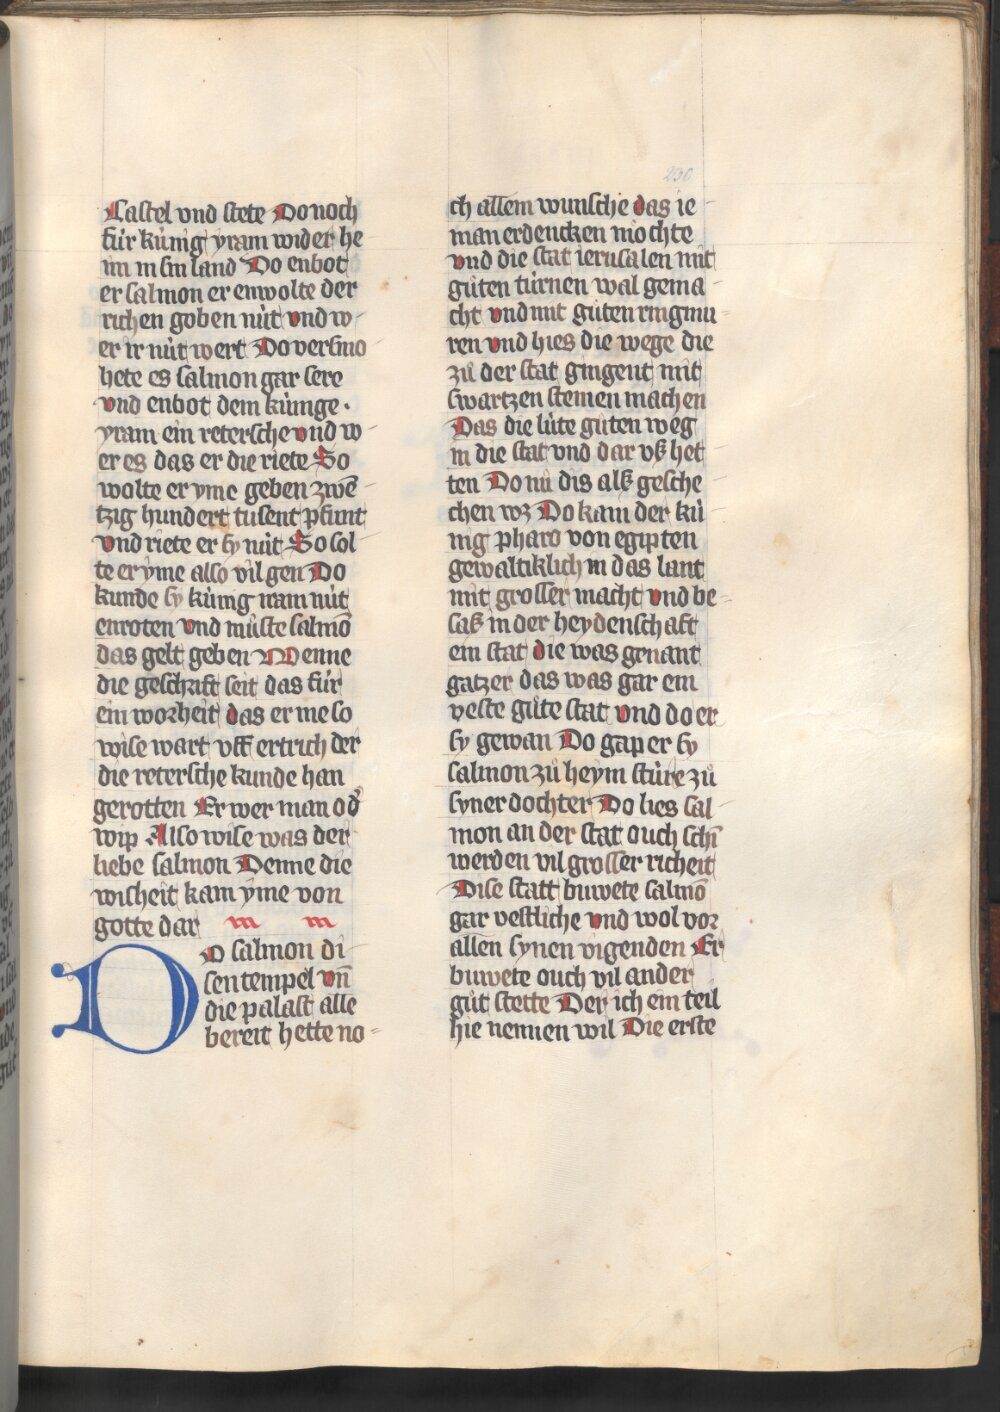 230
Castel vnd stete Do noch
für künig yram wider he
im in sin land Do enbot
er salmon er enwolte der
richen goben nüt vnd w-
er ir nüt wert Do versmo
hete es salmon gar sere
vnd enbot dem künige·
yram ein retersche vnd w-
er es das er die riete So
wolte er yme geben zwē
tzig hundert tusent pfunt
vnd riete er sy nüt So sol
te er yme also vil gen Do
kunde sy künig iram nüt
enroten vnd müste salmō
das gelt geben Wenne
die geschrift seit das für
ein worheit das er nie so
wise wart vff ertrich der
die retersche kunde han
gerotten Er wer man od̾
wip Also wise was der
liebe salmon Denne die
wisheit kam yme von
gotte dar
Do salmon di
sen tempel vn̄
die palast alle
bereit hette no=
ch allem wunsche das ie
man erdencken möchte
vnd die stat ierusalen mit
gůten türnen wal gema
cht vnd mit gůten ringmu
ren vnd hies die wege die
zů der stat gingent mit
swartzen steinen machen
Das die lüte gůten weg
in die stat vnd dar vß het
ten Do nů dis alß gesche
chen wz Do kam der kü
nig pharo von egipten
gewaltiklich in das lant
mit grosser macht vnd be
saß in der heydenschaft
ein stat die was genant
gatzer das was gar ein
veste gůte stat vnd do er
sy gewan Do gap er sy
salmon zů heym stüre zů
syner dochter Do lies sal
mon an der stat ouch schī
werden vil grosser richeit
Dise statt buwete salmō
gar vestliche vnd wol vor
allen synen vigenden Er
buwete ouch vil ander
gůt stette Der ich ein teil
hie nennen wil Die erste